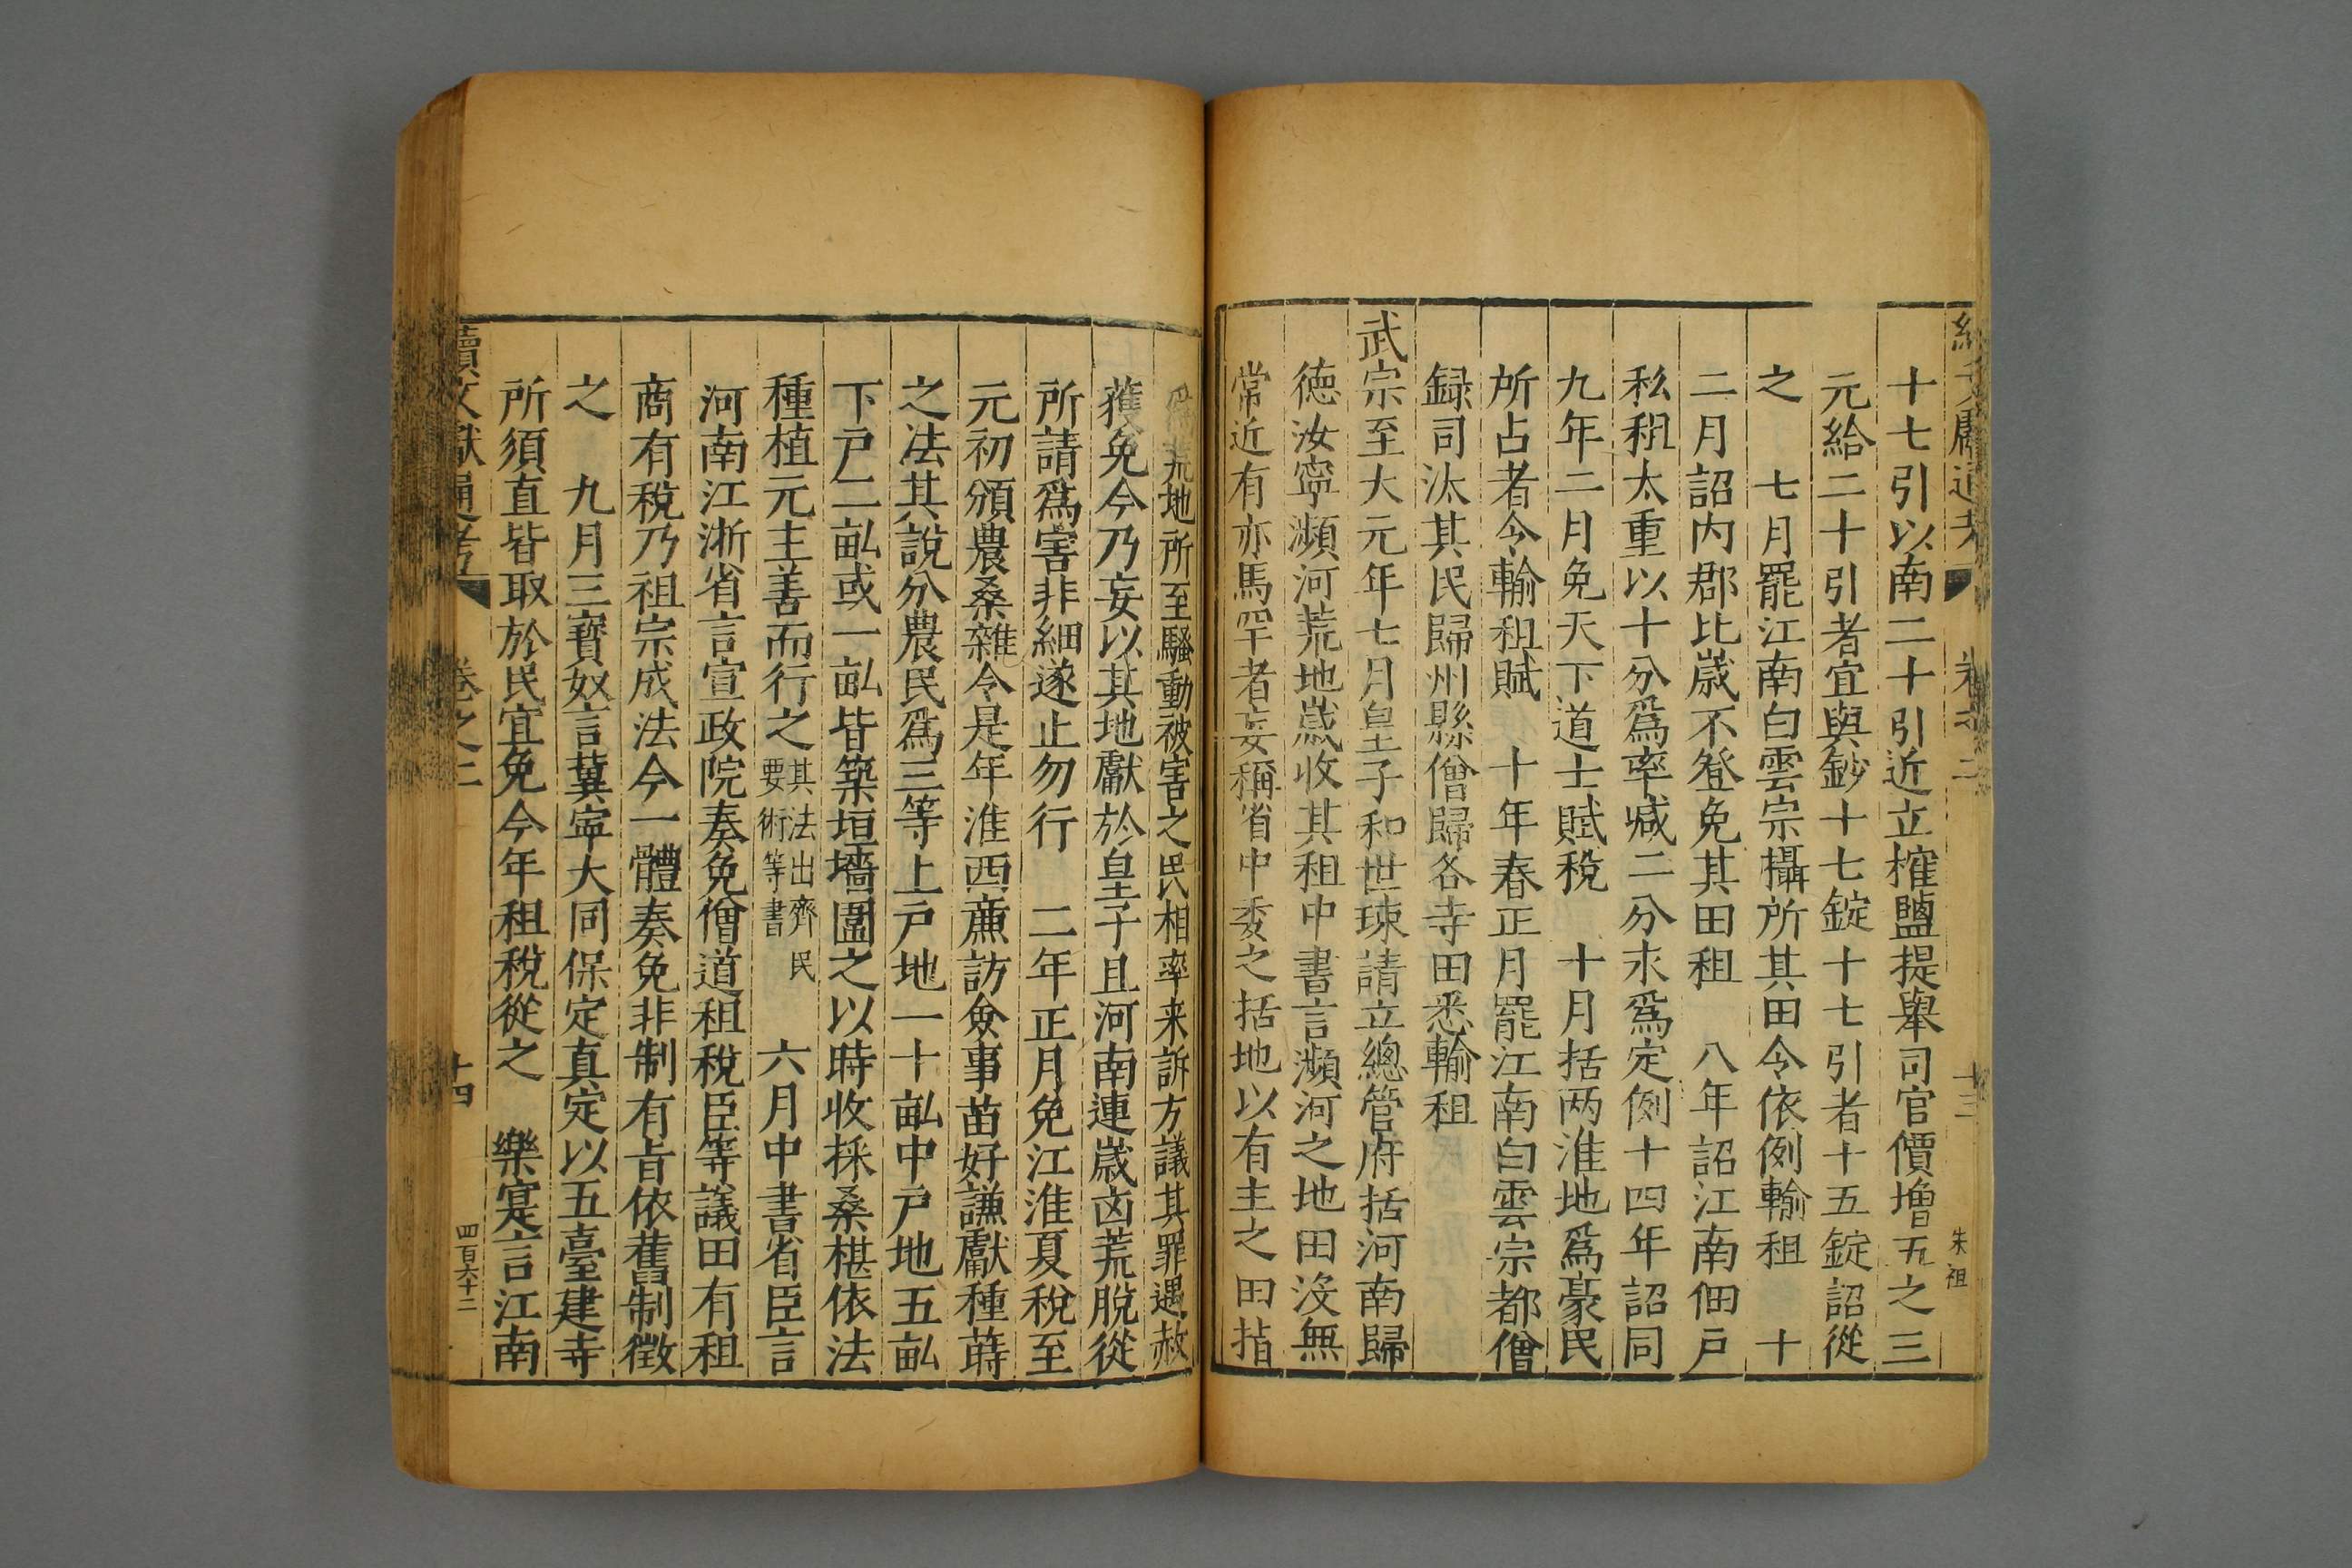 十七引以南二十引近立榷鹽提舉司官價增五之三
元給二十引者宜與鈔十七錠十七引者十五錠詔從
之　七月罷江南白雲宗攝所其田令依例輸租　十
二月詔内郡比歲不登免其田租　八年詔江南佃戸
私租太重以十分爲率减二分永爲定例十四年詔同
九年二月免天下道士賦稅　十月括两淮地爲豪民
所占者令輸租賦　十年春正月罷江南白雲宗都僧
録司汰其民歸州縣僧歸各寺田悉輸租
武宗至大元年七月皇子和世㻋請立總管府括河南歸
德汝寧瀕河荒地歲收其租中書言瀕河之地田没無
常近有亦馬罕者妄稱省中委之括地以有主之田指
爲荒地所至騷動被害之民相率来訴方議其罪遇赦
獲免今乃妄以其地獻於皇子且河南連歲凶荒脫從
所請爲害非細遂止勿行　二年正月免江淮夏稅至
元初頒農桑雜令是年淮西廉訪僉事苗好謙獻種蒔
之法其說分農民爲三等上戸地一十畝中戸地五畝
下戸二畝或一畝皆築垣墻圍之以時收採桑椹依法
種植元主善而行之其法出齊民要術等書　六月中書省臣言
河南江浙省言宣政院奏免僧道租稅臣等議田有租
商有稅乃祖宗成法今一體奏免非制有旨依舊制徵
之　九月三寳奴言冀寧大同保定真定以五臺建寺
所須直皆取於民宜免今年租稅從之　樂寔言江南
續文獻通考　卷之二　十四　四百六十二